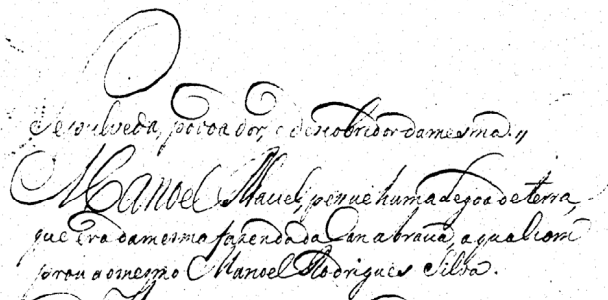 Sepulveda, povoador, e descobridor damesma.,,
Manoel Maciel, pesue huma legoa de terra,
que era damesma fazenda da Canabrava, aqual com
prou aomesmo Manoel Rodrigues Silva.